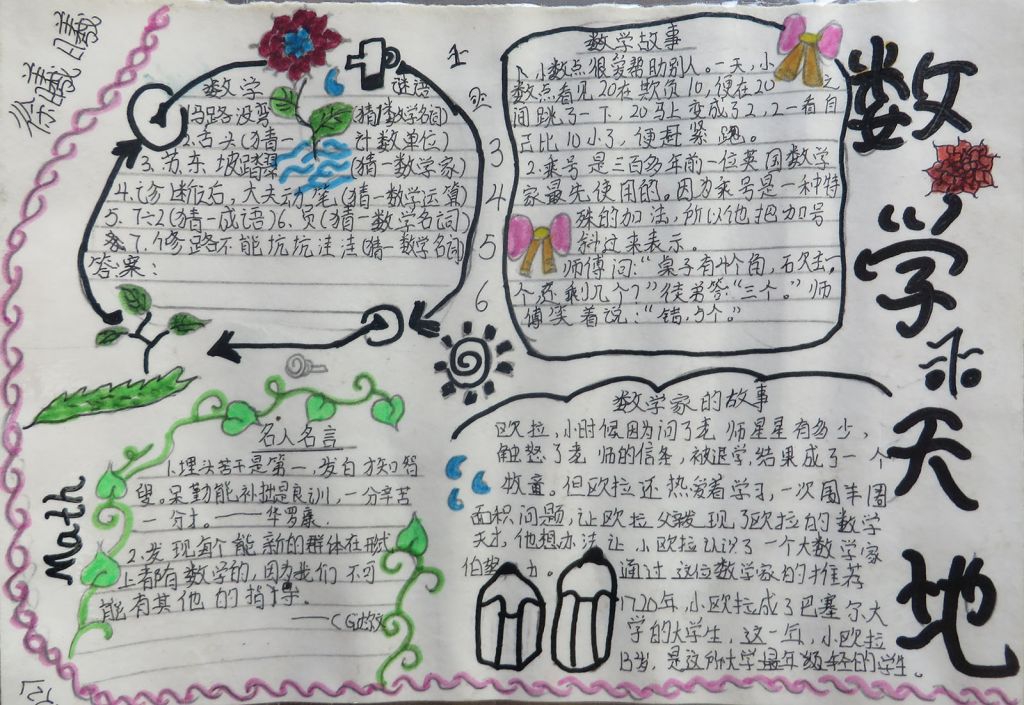 数学天地
数学 谜语
1.马路没弯(猜一数学名词)
2.舌头(猜一计数单位)
3.苏东坡踏 (猜一数学家)
4.诊断后，大夫动笔(猜一数学运算)
5.7÷2(猜一成语)6.员(猜一数学名词)
7.修路不能坑坑洼洼(猜一数学名词)
答案：
1
3
4
5
6
数学故事
1.小数点很爱帮助别人。一天，小
数点看见20在欺负10，便在20之
间跳了一下，20马上变成了2，2一看自
己比10小了，便赶紧跑。
2.乘号是三百多年前一位英国数学
家最先使用的。因为乘号是一种特
殊的加法，所以他把加号
斜过来表示。
师傅问：“桌子有4个角，石欠击一
个还剩几个？”徒弟答：“三个。”师
傅笑着说：“错，5个。”
名人名言
1.埋头苦干是第一，发白才知智
叟。呆勤能补拙是良训，一分辛苦
一分才。——华罗康
2.发现每个能新的群体在形式
上都有数学的，因为我们不可
能有其他的指导。
Math
数学家的故事
欧拉，小时候因为问了老师星星有多少，
触怒了老师的信条，被退学，结果成了一个
牧童。但欧拉还热爱着学习，一次围羊圈
面积问题，让欧拉父亲发现了欧拉的数学
天才，他想办法让小欧拉认识了一个大数学家
伯努力。通过这位数学家的推荐
1720年，小欧拉成了巴塞尔大
学的大学生，这一年，小欧拉
13岁，是这所大学最年轻的学生。